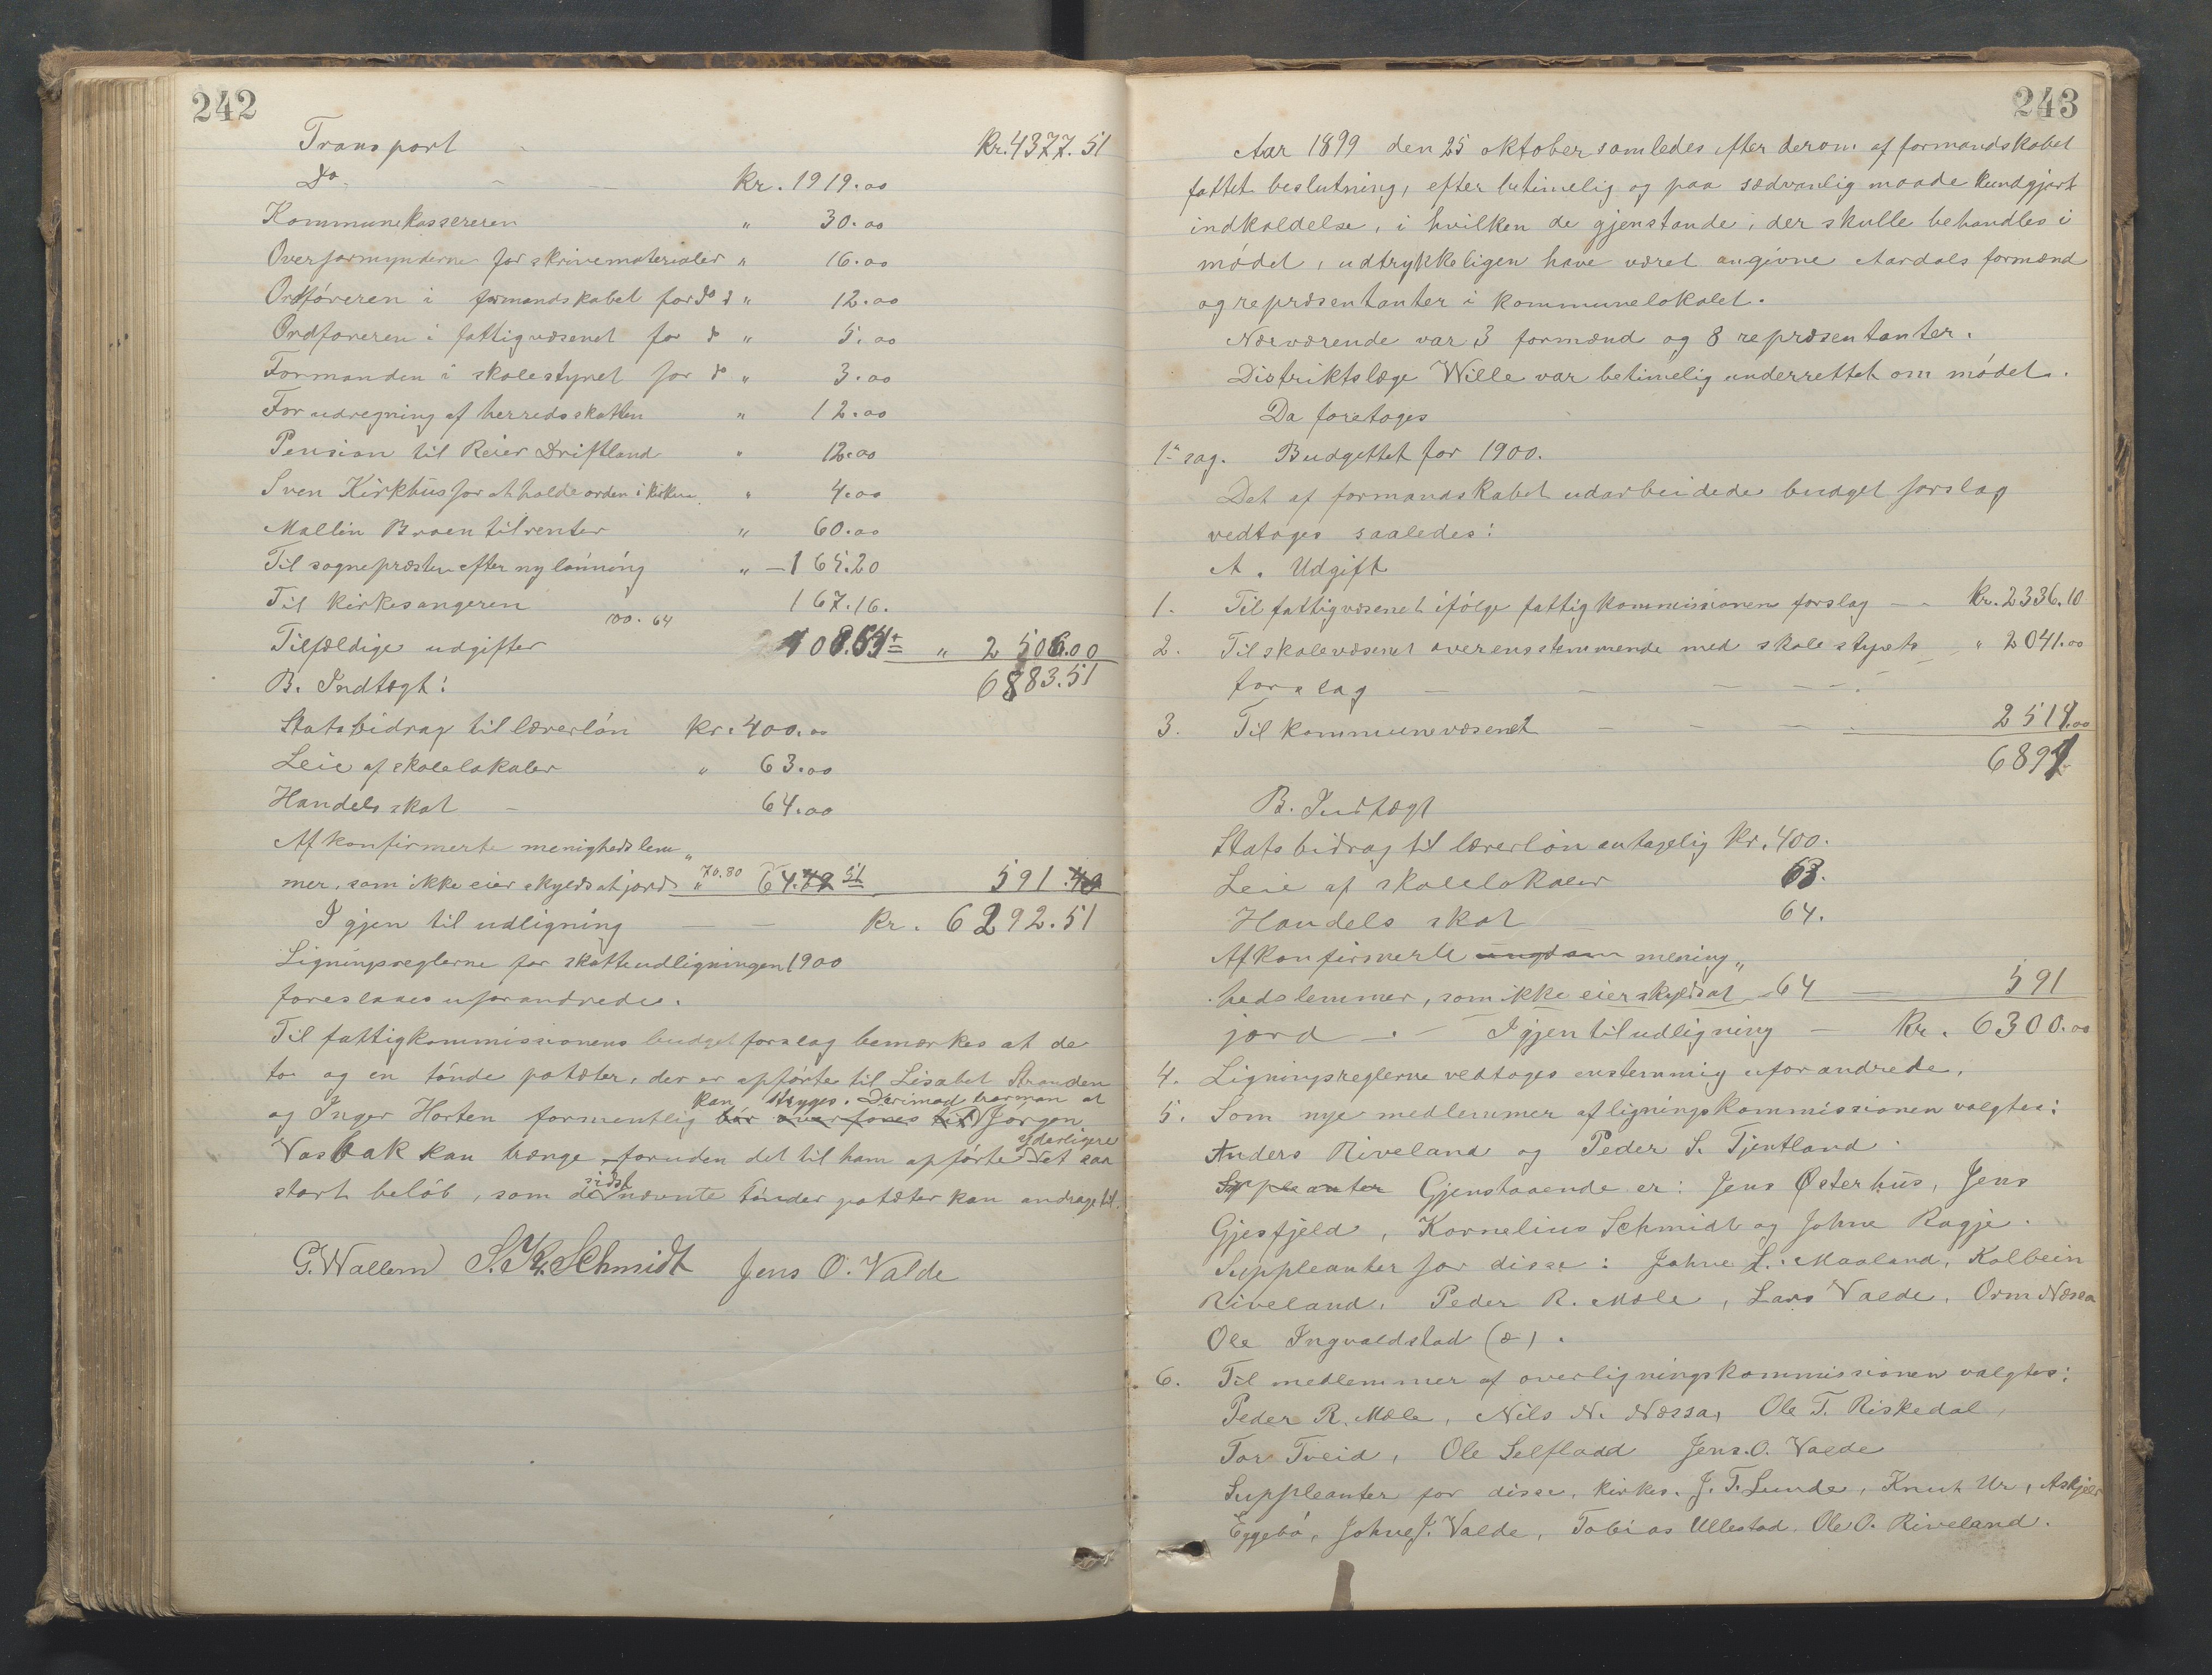 242
Transport kr. 4377.51
Do. kr. 1919.00
Kommunekassereren " 30.00
Overformynderne for skrivematerialer " 16.00
Ordføreren i formandskabet for do " 12.00
Ordføreren i fattigvæsenet for do " 5.00
Formanden i skolestyret for do " 3.00
For udregning af herredsskatten " 12.00
Pension til Reier Driftland " 12.00
Sven Kirkhus for at holde orden i kirken " 4.00
Mallin Broen til renter " 60.00
Til sognepræsten efter ny lønning " 165.20
Til kirkesangeren 167.16.
100.64
Tilfældige udgifter " 2506.00
B. Indtægt: 6883.51
Statsbidrag til lærerløn kr. 400.00
Leie af skolelokaler " 63.00
Handelsskat 64.00
Af konfirmerte menighedslem„
mer, som ikke eier skyldsat jord " 70.80 64. 51 591.
Igjen til udligning kr. 6292.51
Ligningsreglerne for skatteudligningen 1900
foreslaaes uforandrede.
Til fattigkommissionens budgetforslag bemærkes at de
to og en tønde potæter, der er opførte til Lisabet Stranden
kan stryges. Derimod tror man at
og Inger Horten formentlig bør overføres til Jørgen
yderligere
Vasbak kan trænge foruden det til ham opførte et saa
sidst
stort beløb, som de nævnte tønder potæter kan andrage til.
G. Wallem S. K. Schmidt Jens O. Valde
243
Aar 1899 den 25 oktober samledes efter derom af formandskabet
fattet beslutning, efter betimelig og paa sædvanlig maade kundgjort
indkaldelse, i hvilken de gjenstande, der skulle behandles i
mødet, udtrykkeligen have været angivne Aardals formænd
og repræsentanter i kommunelokalet.
Nærværende var 3 formænd og 8 repræsentanter.
Distriktslæge Wille var betimelig underrettet om mødet.
Da foretoges
1ste sag. Budgettet for 1900.
Det af formandskabet udarbeidede budget forslag
vedtoges saaledes:
A. Udgift
1. Til fattigvæsenet ifølge fattigkommissionens forslag kr. 2336.10
2. Til skolevæsenet overensstemmende med skolestyrets " 2041.00
forslag
3. Til kommunevæsenet 2514.00
6891
B. Indtægt
Statsbidrag til lærerløn antagelig kr. 400.
Leie af skolelokaler 63.
Handels skat 64.
Af konfirmerte ungdom menig„
hedslemmer, som ikke eier skyldsat 64 591
jord. Igjen til udligning kr. 6300.00
4. Ligningsreglerne vedtoges enstemmig uforandrede.
5. Som nye medlemmer af ligningskommissionen valgtes:
Anders Riveland og Peder S. Tjentland.
Suppleanter Gjenstaaende er: Jens Østerhus, Jens
Gjesfjeld, Kornelius Schmidt og Johne Ragje.
Suppleanter for disse: Johne L. Maaland, Kolbein
Riveland, Peder R. Mæle, Lars Valde, Orm Næssa
Ole Ingvaldstad (æ).
6. Til medlemmer af overligningskommissionen valgtes:
Peder R. Mæle, Nils N. Næssa, Ole T. Riskedal,
Tor Tveid, Ole Selfladd Jens O. Valde
Suppleanter for disse, kirkes. J. T. Lunde, Knut Ur, Askjær
Eggebø, Johne J. Valde, Tobias Ullestad, Ole O. Riveland.